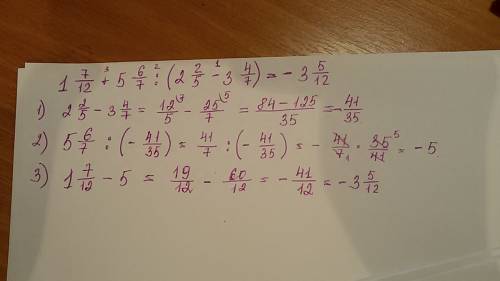 1 7/12 +³ 5 6/7 :² (2 2/5 -¹ 3 4/7) = - 3 5/12
1) 2 2/5 - 3 4/7 = 12/5 \7 - 25/7 \5 = 84-125/35 = - 41/35
2) 5 6/7 : (- 41/35) = 41/7 : (- 41/35) = - 41/7₁ · 35⁵/41 = - 5.
3) 1 7/12 - 5 = 19/12 - 60/12 = - 41/12 = - 3 5/12